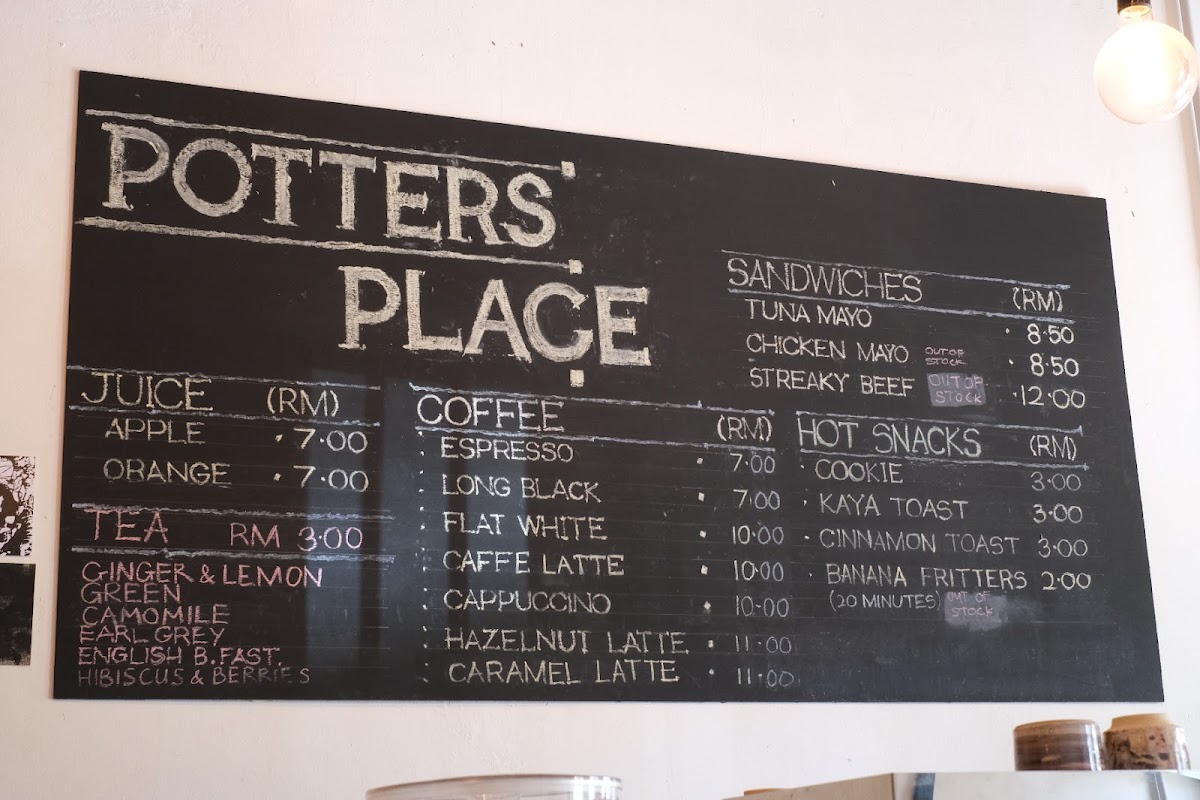 POTTERS'
PLACE
JUICE (RM)
APPLE 7.00
ORANGE 7.00
TEA RM 3.00
GINGER & LEMON
GREEN
CAMOMILE
EARL GREY
ENGLISH B.FAST.
HIBISCUS & BERRIES
COFFEE (RM)
ESPRESSO 7.00
LONG BLACK 7.00
FLAT WHITE 10.00
CAFFE LATTE 10.00
CAPPUCCINO 10.00
HAZELNUT LATTE 11.00
CARAMEL LATTE 11.00
SANDWICHES (RM)
TUNA MAYO 8.50
CHICKEN MAYO OUT OF STOCK 8.50
STREAKY BEEF OUT OF STOCK 12.00
HOT SNACKS (RM)
COOKIE 3.00
KAYA TOAST 3.00
CINNAMON TOAST 3.00
BANANA FRITTERS 2.00
(20 MINUTES) OUT OF STOCK